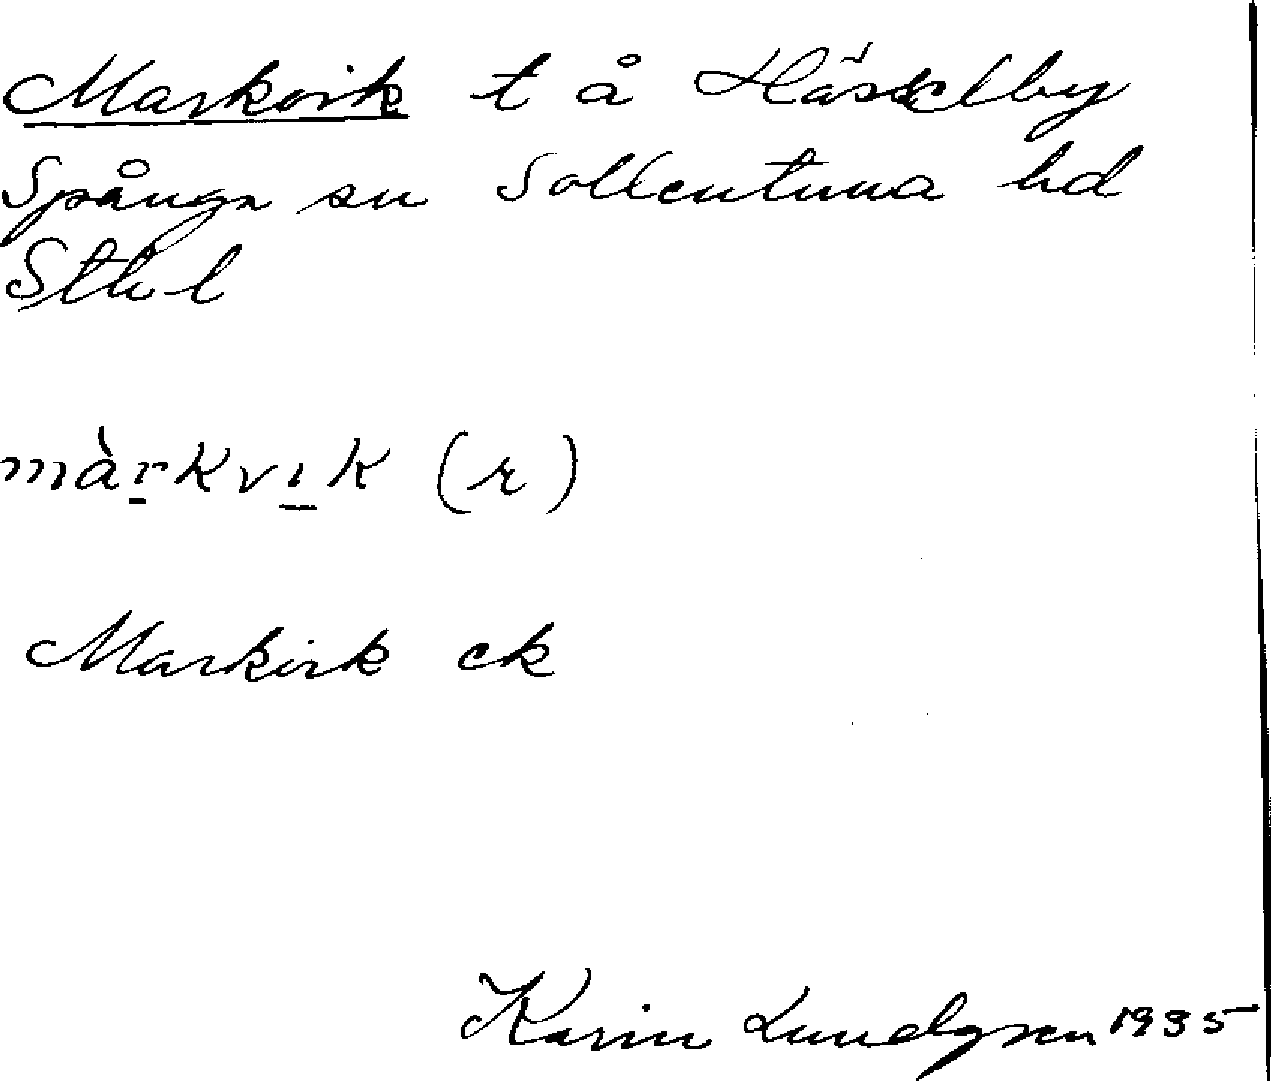 Markvik t å Hässelby
Spånga sn Sollentuna hd
Sthl
màrkvık (r)
Markvik ek
Karin Lundgren 1935